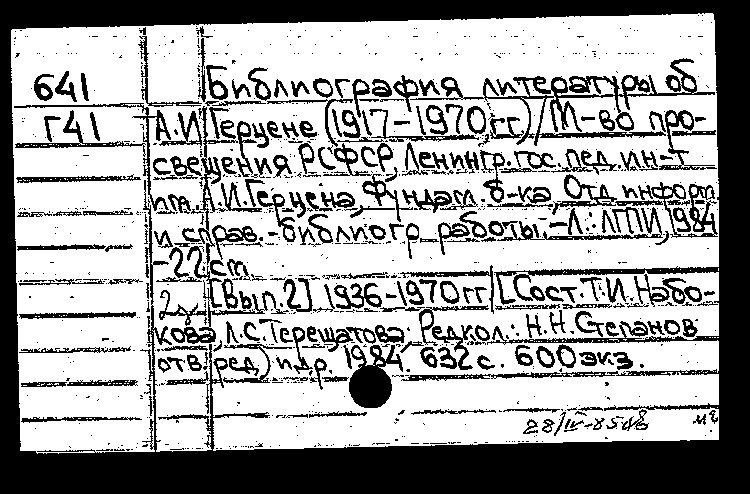 641 Библиография литературы об
Г41 А.И.Герцене (1917-1970гг)/М-во про-
свещения РСФСР, Ленингр.гос.пед.ин-т
им.А.И.Герцена, Фундам.б-ка Отд информ
и справ.-библиогр работы.-Л.:ЛГПИ,1984
-22см
2х [Вып.2] 1936-1970гг/[Сост.Т.И.Набо-
кова, Л.С.Терещатова: Редкол.: Н.Н.Степанов
отв ред) и др. 1984. 632 с. 600 экз.
28/IV-85